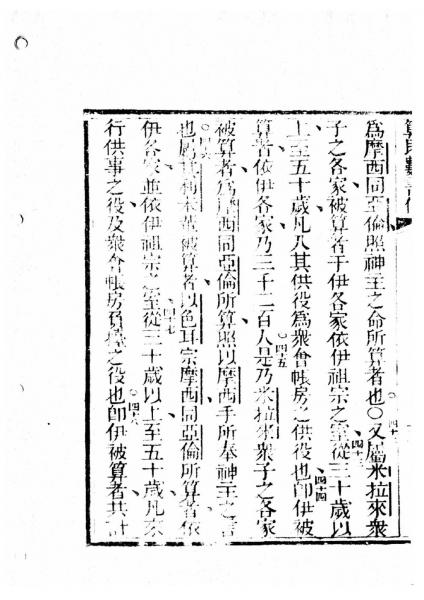 為摩西同亞倫照神主之命所算者也○四十二又屬米拉來衆
子之各家被算者于伊各家依伊祖宗之室四十三從三十歲以
上至五十歲凡入其供役為衆會帳房之供役也四十四即伊被
算者依伊各家乃三千二百人○四十五是乃米拉來衆子之各家
被算者為摩西同亞倫所算照以摩西手所奉神主之言
也○四六屬利未輩被算者以色耳宗摩西同亞倫所算者依
伊各家並依伊祖宗之室四七從三十歲以上至五十歲凡來
行供事之役及衆會帳房負之役也○四八即伊被算者共計